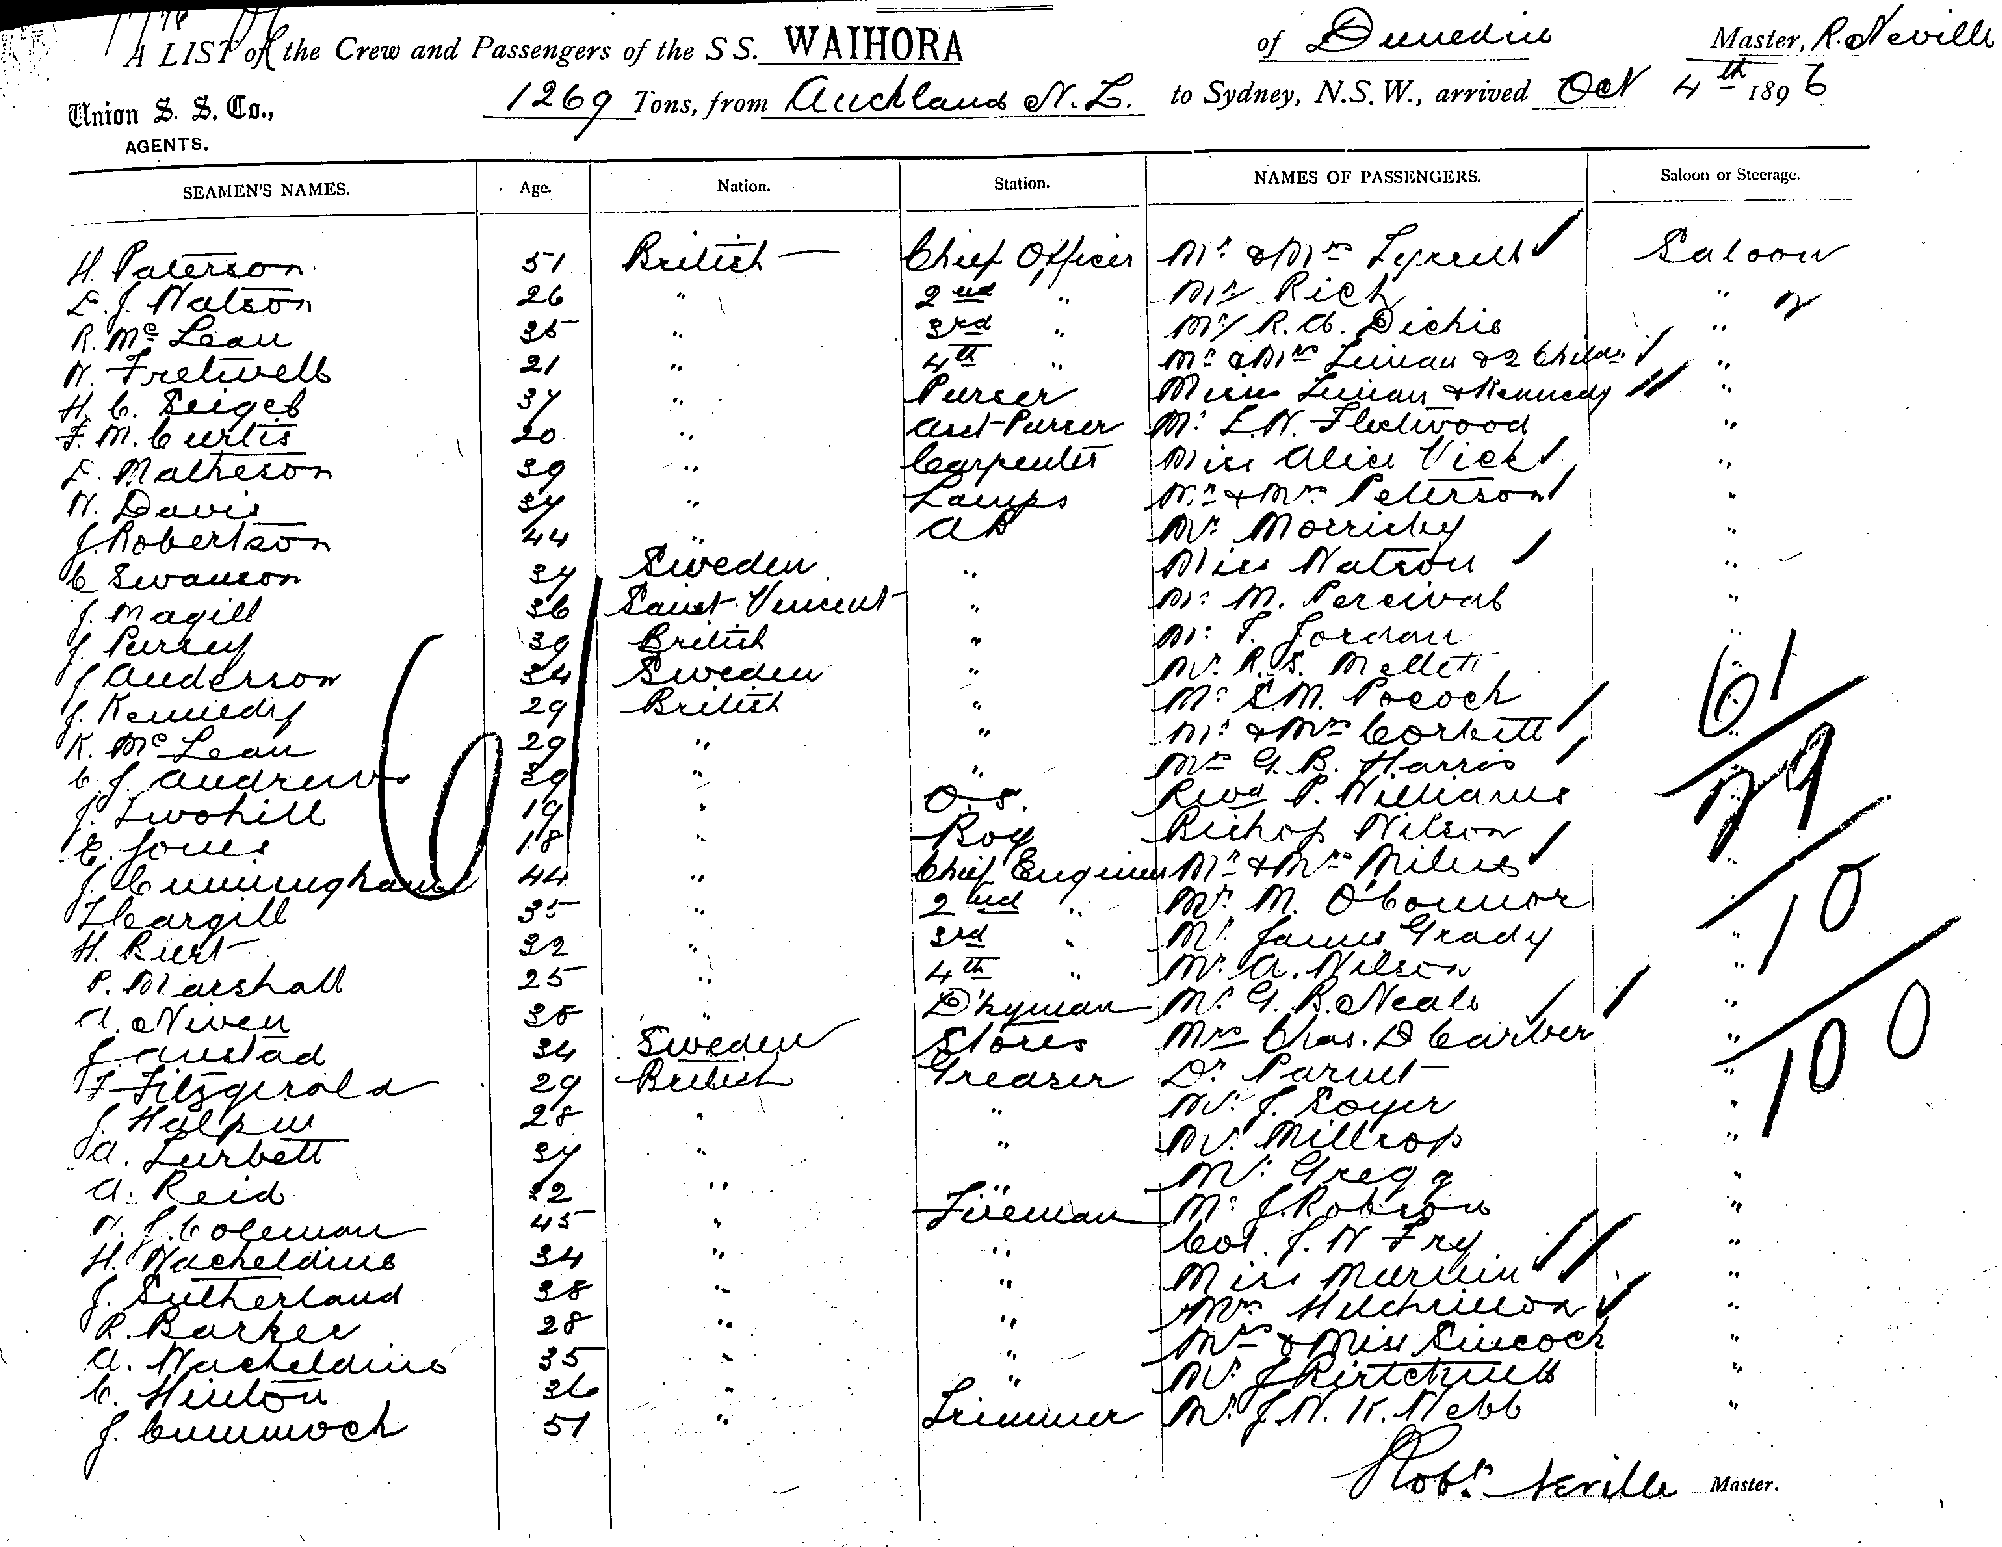 A LIST of the Crew and Passengers of the S S. WAIHORA of Dunedin Master, R. Neville
Union S. S. Co., 1269 Tons, from Auckland N. Z. to Sydney, N.S.W., arrived Oct 4th 1896
AGENTS.
SEAMEN'S NAMES. Age. Nation. Station. NAMES OF PASSENGERS. Saloon or Steerage.
H. Paterson 51 British Chief Officer Mr & Mrs Saloon
J. Watson 26 " 2nd " Rich "
R. McLean 35 " 3rd " R. A. Dickie "
W. Fretwell 21 " 4th " Mr & Mrs & 2 "
H. C. Seigel 37 " Purser & Kennedy "
F. M. Curtis 20 " Asst Purser Mr Fleetwood "
Matheson 39 " Carpenter Miss Alice Vick "
W. Davis 37 " Lamps Mr & Mrs Peterson "
J. Robertson 44 " A B Mr Morrisby "
C Swanson 37 Sweden " Miss Watson "
J. Magill 36 Saint Vincent " Mr M. Percival "
J Pursey 39 British " Mr Jordan "
J Anderson 34 Sweden " Mr R. S. Mellett "
J. Kennedy 29 British " Mr Pocock "
McLean 29 " " Mr & Mrs Corbett "
C. J. Andrews 39 " " Mrs G. B. Harris "
J. Twohill 19 " O.S. Revd P. Williams "
E. Jones 18 " Boy Bishop Wilson "
J. Cunningham 44 " Chief Engineer Mr & Mrs Milnes "
Cargill 35 " 2nd " Mr M. O'Connor "
H. Burt " 3rd " Mr James Grady "
P. Marshall 25 " 4th " Mr A. Wilson "
A. Niven " D'kyman Mr G. B. Neale "
J. 34 Sweden Stores Mrs Chas. D Carver "
Fitzgerald 29 British Greaser Dr "
J. Halpin 28 " " Mr J. Soyer "
A. Turbett 37 " " Mr Milltrop "
A. Reid " " Mr Gregg "
W. J. Coleman 45 " Fireman Mr J. Robson "
H. Wacheldine 34 " " Col. J. W Fry "
J. Sutherland 38 " " Miss "
R. Barker 28 " " Mrs "
A. Wacheldine 35 " " & Miss "
C. Hinton 36 " " Mr J "
J. Cummock 51 " Trimmer Mr J. W. K. Webb "
61
29
10
100
Robt. Neville Master.